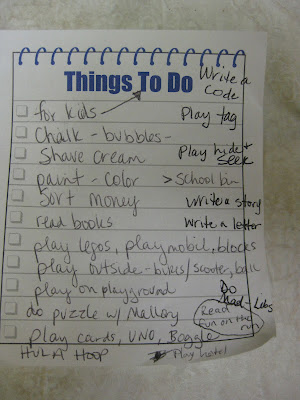 Things To Do
Write a
code
for kids
Play tag
Chalk - bubbles -
Shave cream
Play hide &
seek
paint - color > School bin
Sort money
write a story
read books
write a letter
play legos, playmobil, blocks
play outside - bikes/scooter, ball
play on playground
Do
Mad-Libs
do puzzle w/ Mallory
Read
fun on the
run
play cards, UNO, Boggle
HULA HOOP
Play hotel